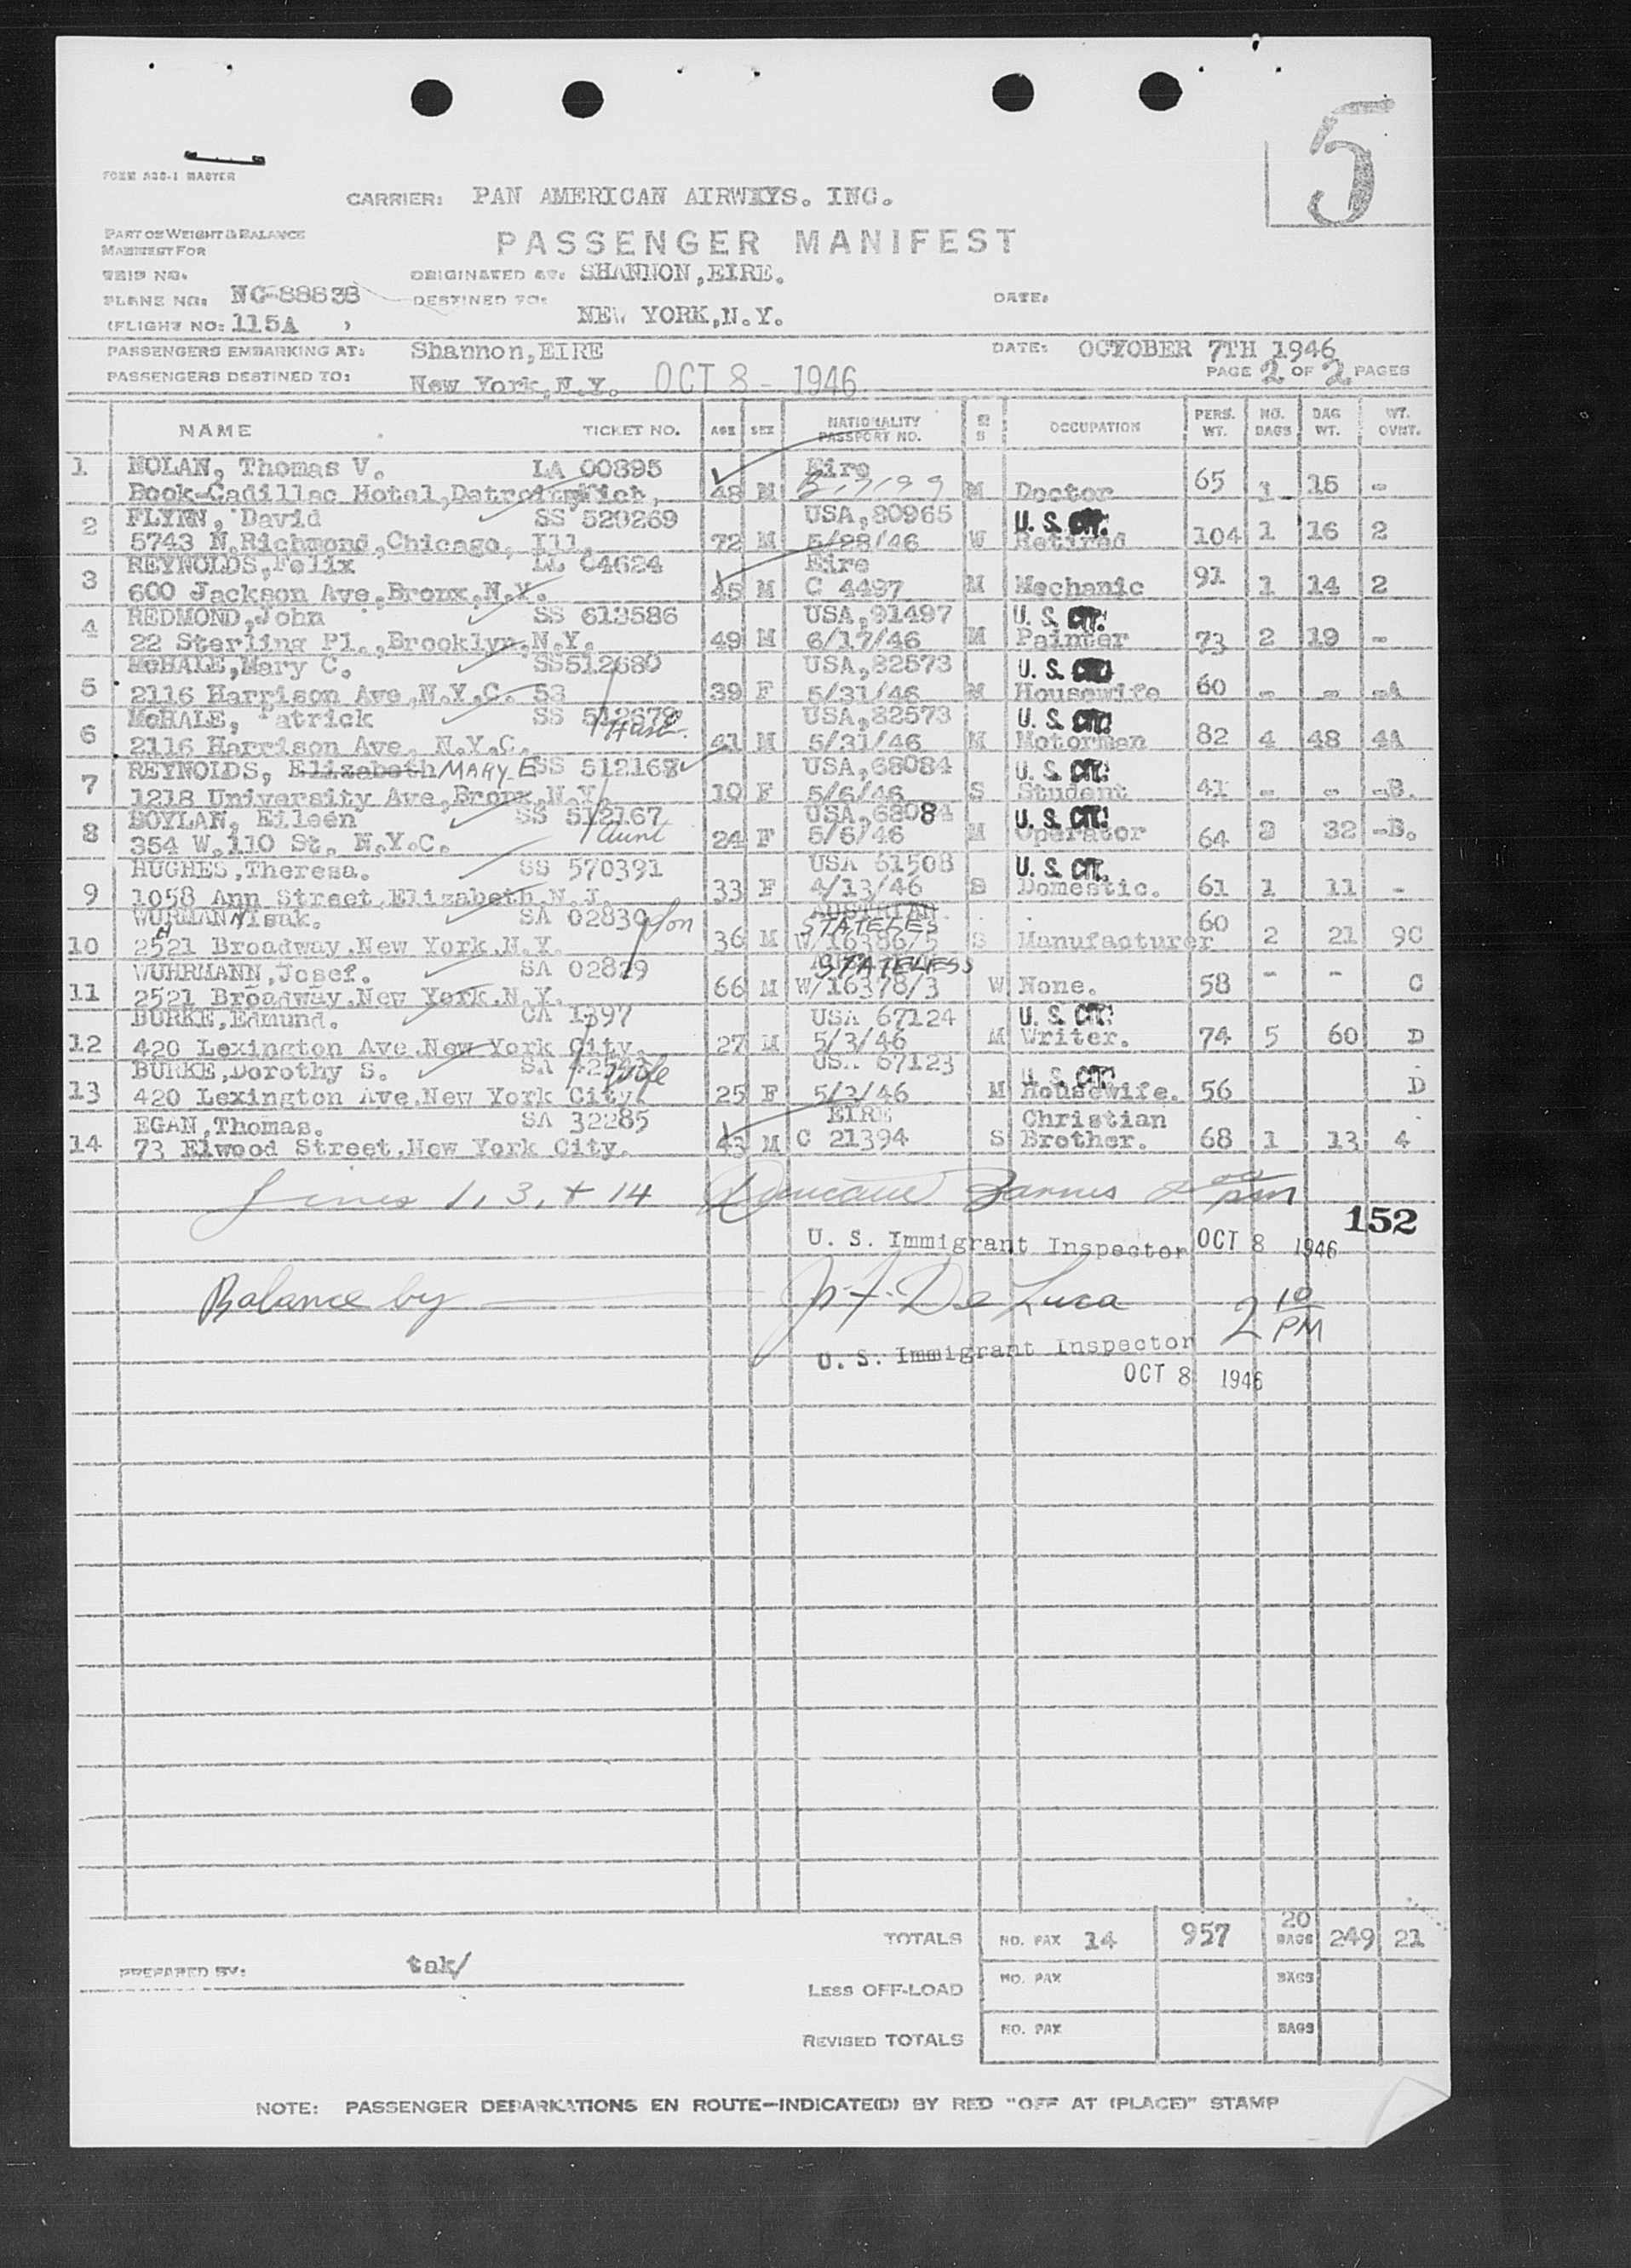 5
FORM ASC-1 MASTER
CARRIER: PAN AMERICAN AIRWAYS. INC.
PART OF WEIGHT & BALANCE
MANIFEST FOR
PASSENGER MANIFEST
TRIP NO.
ORIGINATED AT: SHANNON, EIRE.
PLANE NO: NC-88838
DESTINED TO:
DATE:
NEW YORK, N.Y.
(FLIGHT NO: 115A )
PASSENGERS EMBARKING AT: Shannon, EIRE
DATE: OCTOBER 7TH 1946
PASSENGERS DESTINED TO: New York, N.Y. OCT 8 - 1946
PAGE 2 OF 2 PAGES
NAME TICKET NO. AGE SEX NATIONALITY PASSPORT NO. M S OCCUPATION PERS. WT. NO. BAGS BAG WT. WT. OVHT.
1 NOLAN, Thomas V. LA 00895 Eire
Book-Cadillac Hotel, Detroit, Mich, 48 M M Doctor 65 1 15 -
2 FLYNN, David SS 520269 USA, 80965 U. S. CIT.
5743 N. Richmond, Chicago, Ill, 72 M 5/28/46 W Retired 104 1 16 2
3 REYNOLDS, Felix LL 04624 Eire
600 Jackson Ave, Bronx, N.Y. 45 M C 4497 M Mechanic 91 1 14 2
4 REDMOND, John SS 613586 USA, 91497 U. S. CIT.
22 Sterling Pl., Brooklyn, N.Y. 49 M 6/17/46 M Painter 73 2 19 -
5 McHALE, Mary C. SS 512680 USA, 82573 U. S. CIT.
2116 Harrison Ave, N.Y.C. 53 39 F 5/31/46 M Housewife 60 - - -A
6 McHALE, Patrick SS 512679 Husb. USA, 82573 U. S. CIT.
2116 Harrison Ave, N.Y.C. 41 M 5/31/46 M Motorman 82 4 48 4A
7 REYNOLDS, Elizabeth MARY E SS 512168 USA, 68084 U. S. CIT.
1218 University Ave, Bronx, N.Y. 10 F 5/6/46 S Student 41 - - -B.
8 BOYLAN, Eileen SS 512167 Aunt USA, 68084 U. S. CIT.
354 W. 110 St. N.Y.C. 24 F 5/6/46 M Operator 64 2 32 -B.
9 HUGHES, Theresa. SS 570391 USA 61508 U. S. CIT.
1058 Ann Street, Elizabeth, N.J. 33 F 4/13/46 S Domestic. 61 1 11 -
10 WUHRMANN, Isak. SA 02830 Son AUSTRIAN STATELES
2521 Broadway, New York, N.Y. 36 M W/16386/5 S Manufacturer 60 2 21 9C
11 WUHRMANN, Josef. SA 02829 STATELESS
2521 Broadway, New York, N.Y. 66 M W/16378/3 W None. 58 - - C
12 BURKE, Edmund. CA 1397 USA 67124 U. S. CIT.
420 Lexington Ave, New York City. 27 M 5/3/46 M Writer. 74 5 60 D
13 BURKE, Dorothy S. SA wife USA 67123 U. S. CIT.
420 Lexington Ave, New York City. 25 F 5/3/46 M Housewife. 56 D
14 EGAN, Thomas. SA 32285 EIRE Christian
73 Elwood Street, New York City. 43 M C 21394 S Brother. 68 1 13 4
Lines 1, 3, + 14 2 00 pm
152
U. S. Immigrant Inspector OCT 8 1946
Balance by De Luca 2 10 PM
U. S. Immigrant Inspector
OCT 8 1946
TOTALS NO. PAX 14 957 20 BAGS 249 21
PREPARED BY: tak/
LESS OFF-LOAD NO. PAX BAGS
REVISED TOTALS NO. PAX BAGS
NOTE: PASSENGER DEBARKATIONS EN ROUTE-INDICATE(D) BY RED "OFF AT (PLACE)" STAMP